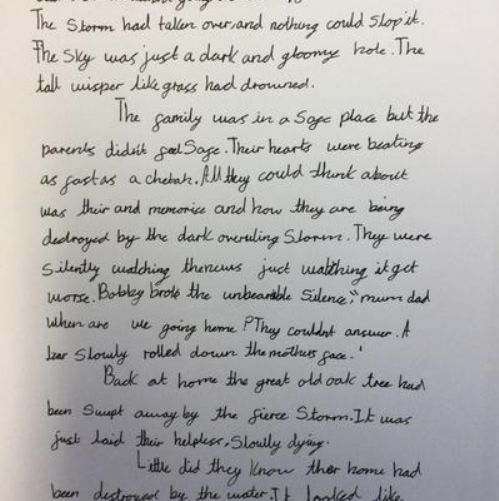 The Storm had taken over and nothing could stop it.
The sky was just a dark and gloomy hole. The
tall wisper like grass had drowned.
The family was in a safe place but the
parents didn't feel safe. Their hearts were beating
as fast as a chetah. All they could think about
was their and memorise and how they are being
destroyed by the dark overuling Storm. They were
silently watching the news just watthing it get
worse. Bobby broke the unbearable silence, "mum dad
when are we going home? They couldnt answer. A
tear slowly rolled down the mothers face.'
Back at home the great old oak tree had
been swept away by the fierce Storm. It was
just laid their helpless, slowly dying.
Little did they know ther home had
been destroyed by the water. It looked like